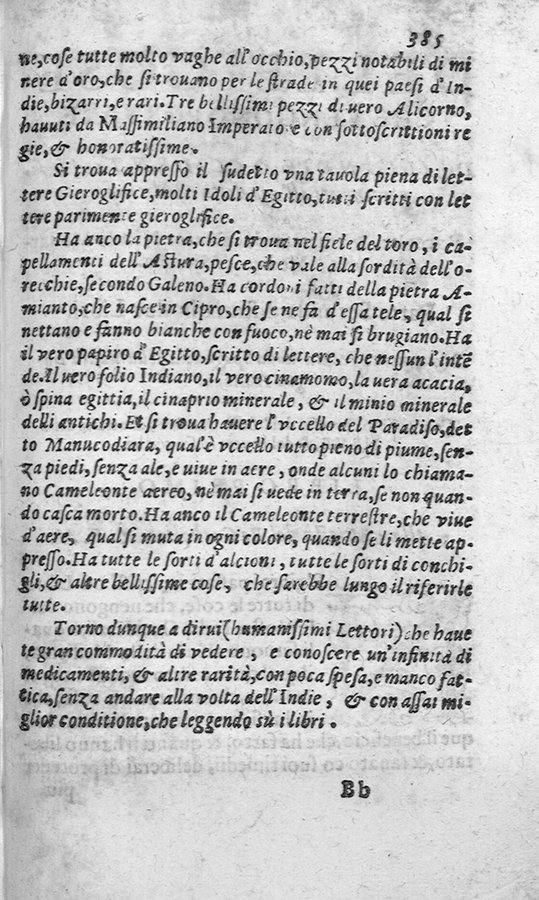 385
ne,cose tutte molto vaghe all'occhio,pezzi notabili di mi
nere d'oro,che si trouano per le strade in quei paesi d'In-
die,bizarri,e rari.Tre bellissimi pezzi di vero Alicorno,
hauuti da Massimiliano Imperatore con sottoscrittioni re
gie,& honoratissime.
Si troua appresso il sudetto vna tauola piena di let-
tere Gieroglifice,molti Idoli d'Egitto,tutti scritti con let
tere parimente gieroglifice.
Ha anco la pietra,che si troua nel fiele del toro, i ca-
pellamenti dell'Astura,pesce,che vale alla sordità dell'o-
recchie,secondo Galeno.Ha cordoni fatti della pietra A-
mianto,che nasce in Cipro,che se ne fa d'essa tele, qual si
nettano e fanno bianche con fuoco,nè mai si brugiano.Ha
il vero papiro d'Egitto,scritto di lettere, che nessun l'intē
de.Il uero folio Indiano,il vero cinamomo,la uera acacia,
ò spina egittia,il cinaprio minerale, & il minio minerale
delli antichi.Et si troua hauere l'vccello del Paradiso,det
to Manucodiara, qual'è vccello tutto pieno di piume,sen-
za piedi,senza ale,e uiue in aere, onde alcuni lo chiama-
no Cameleonte aereo,nè mai si uede in terra,se non quan-
do casca morto.Ha anco il Cameleonte terrestre,che viue
d'aere, qual si muta in ogni colore, quando se li mette ap-
presso.Ha tutte le sorti d'alcioni,tutte le sorti di conchi-
gli,& altre bellissime cose, che sarebbe lungo il riferirle
tutte.
Torno dunque a dirui(humanissimi Lettori)che haue
te gran commodità di vedere , e conoscere un'infinità di
medicamenti,& altre rarità,con poca spesa,e manco fat-
tica,senza andare alla volta dell'Indie, & con assai mi-
glior conditione,che leggendo sù i libri .
Bb